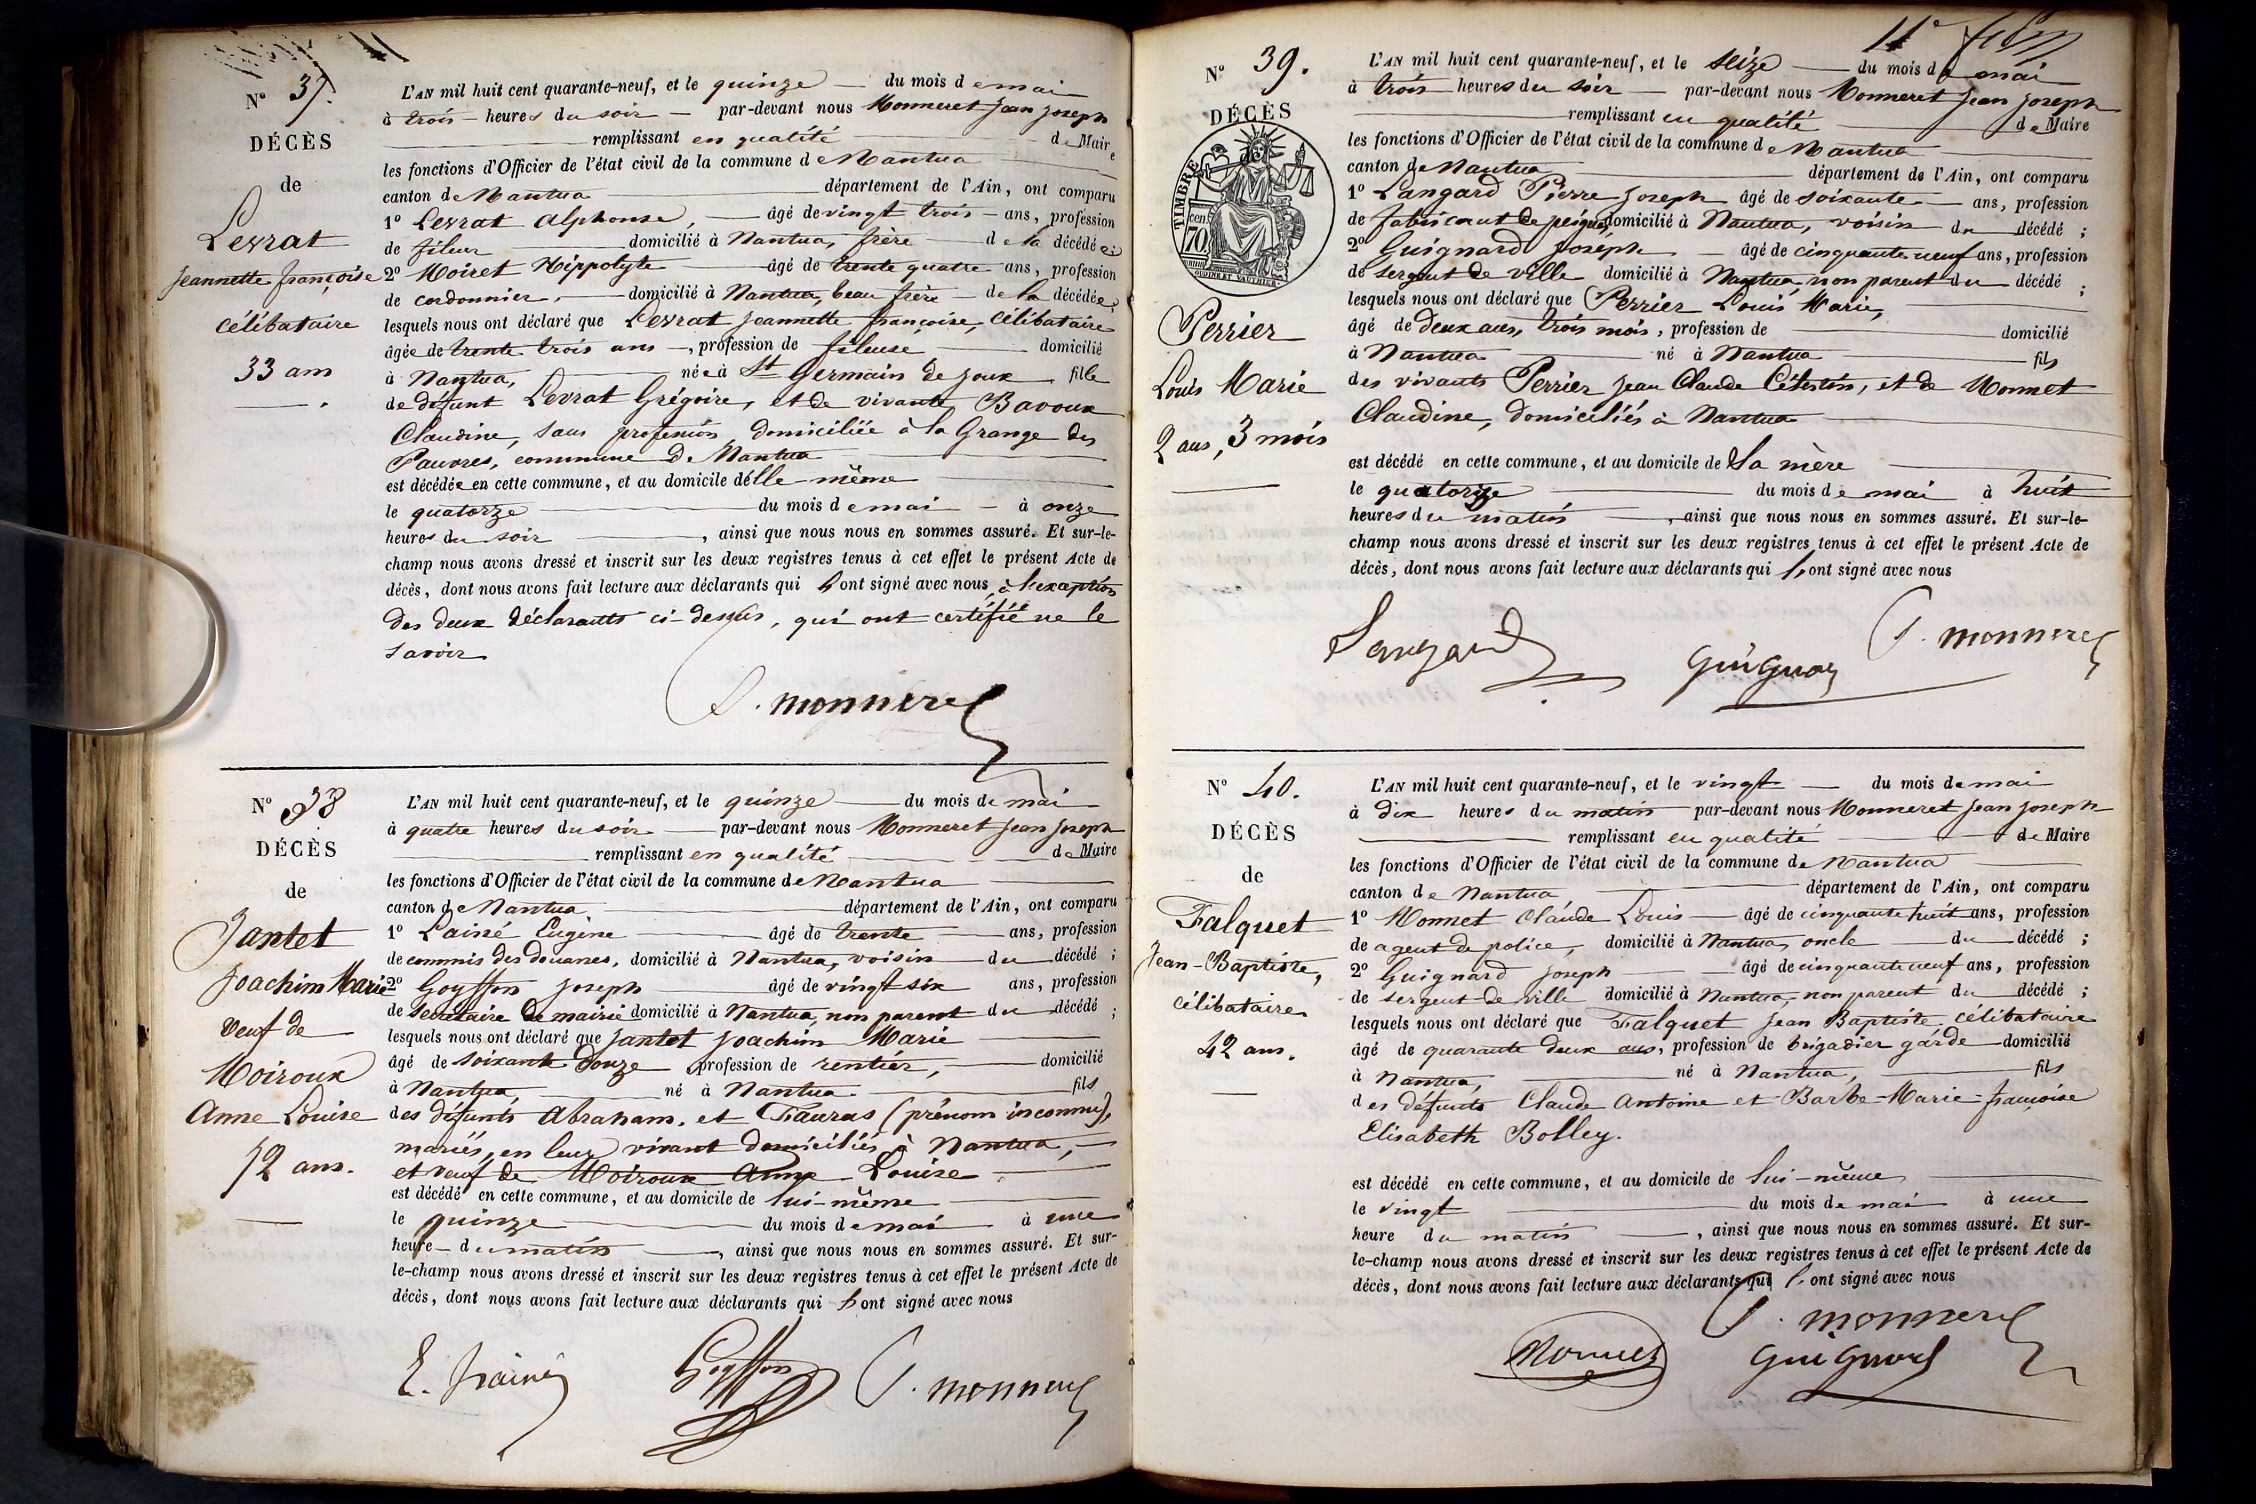 Nº 37.
DÉCÈS
de
Levrat
Jeannette françoise
célibataire
33 ans
L'AN mil huit cent quarante-neuf, et le quinze du mois de mai
à trois heures du soir par-devant nous Monneret Jean Joseph
remplissant en qualité de Maire
les fonctions d'Officier de l'état civil de la commune de Nantua
canton de Nantua département de l'Ain, ont comparu
1º Levrat Alphonse, âgé de vingt trois ans, profession
de fileur domicilié à Nantua, frère de la décédée
2º Moiret Hippolyte âgé de trente quatre ans, profession
de cordonnier, domicilié à Nantua, beau frère de la décédée,
lesquels nous ont déclaré que Levrat Jeannette françoise, célibataire
âgée de trente trois ans, profession de fileuse domicilié
à Nantua, née à St Germain de Joux fille
de défunt Levrat Grégoire, et de vivante Bavoux
Claudine, sans profession domiciliée à la Grange des
Pauvres, commune de Nantua
est décédée en cette commune, et au domicile d'elle-même
le quatorze du mois de mai à onze
heures du soir, ainsi que nous nous en sommes assuré. Et sur-le-
champ nous avons dressé et inscrit sur les deux registres tenus à cet effet le présent Acte de
décès, dont nous avons fait lecture aux déclarants qui ont signé avec nous, à l'exception
des deux déclarants ci-dessus, qui ont certifié ne le
savoir
J. monneret
Nº 38
DÉCÈS
de
Jantet
Joachim Marie
veuf de
Moiroux
Anne Louise
72 ans.
L'AN mil huit cent quarante-neuf, et le quinze du mois de mai
à quatre heures du soir par-devant nous Monneret Jean Joseph
remplissant en qualité de Maire
les fonctions d'Officier de l'état civil de la commune de Nantua
canton de Nantua département de l'Ain, ont comparu
1º Lainé Eugène âgé de trente ans, profession
de commis des douanes, domicilié à Nantua, voisin du décédé;
2º Goyffon Joseph âgé de vingt six ans, profession
de secrétaire de mairie domicilié à Nantua, non parent du décédé;
lesquels nous ont déclaré que Jantet Joachim Marie
âgé de soixante douze profession de rentier, domicilié
à Nantua, né à Nantua fils
des défunts Abraham, et Fauras (prénom inconnu),
mariés, en leur vivant domiciliés à Nantua,
et veuf de Moiroux Anne Louise
est décédé en cette commune, et au domicile de lui-même
le quinze du mois de mai à une
heure du matin, ainsi que nous nous en sommes assuré. Et sur-
le-champ nous avons dressé et inscrit sur les deux registres tenus à cet effet le présent Acte de
décès, dont nous avons fait lecture aux déclarants qui ont signé avec nous
E. Lainé Goyffon J. monneret
11e
Nº 39.
DÉCÈS
de
TIMBRE
70 cen
OUDINE ET VAUTHIER.
Perrier
Louis Marie
2 ans, 3 mois
L'AN mil huit cent quarante-neuf, et le seize du mois de mai
à trois heures du soir par-devant nous Monneret Jean Joseph
remplissant en qualité de Maire
les fonctions d'Officier de l'état civil de la commune de Nantua
canton de Nantua département de l'Ain, ont comparu
1º Langard Pierre Joseph âgé de soixante ans, profession
de fabricant de peignes, domicilié à Nantua, voisin du décédé;
2º Guignard Joseph âgé de cinquante neuf ans, profession
de sergent de ville domicilié à Nantua, non parent du décédé;
lesquels nous ont déclaré que Perrier Louis Marie,
âgé de deux ans, trois mois, profession de domicilié
à Nantua né à Nantua fils
des vivants Perrier Jean Claude Célestin, et de Monnet
Claudine, domiciliés à Nantua
est décédé en cette commune, et au domicile de sa mère
le quatorze du mois de mai à huit
heures du matin, ainsi que nous nous en sommes assuré. Et sur-le-
champ nous avons dressé et inscrit sur les deux registres tenus à cet effet le présent Acte de
décès, dont nous avons fait lecture aux déclarants qui ont signé avec nous
Langard Guignard J. monneret
Nº 40.
DÉCÈS
de
Falquet
Jean-Baptiste,
célibataire
42 ans.
L'AN mil huit cent quarante-neuf, et le vingt du mois de mai
à dix heures du matin par-devant nous Monneret Jean Joseph
remplissant en qualité de Maire
les fonctions d'Officier de l'état civil de la commune de Nantua
canton de Nantua département de l'Ain, ont comparu
1º Monnet Claude Louis âgé de cinquante huit ans, profession
de agent de police, domicilié à Nantua, oncle du décédé;
2º Guignard Joseph âgé de cinquante neuf ans, profession
de sergent de ville domicilié à Nantua, non parent du décédé;
lesquels nous ont déclaré que Falquet Jean Baptiste célibataire
âgé de quarante deux ans, profession de brigadier garde domicilié
à Nantua, né à Nantua, fils
des défunts Claude Antoine et Barbe-Marie-françoise
Elisabeth Bolley.
est décédé en cette commune, et au domicile de lui-même
le vingt du mois de mai à une
heure du matin, ainsi que nous nous en sommes assuré. Et sur-
le-champ nous avons dressé et inscrit sur les deux registres tenus à cet effet le présent Acte de
décès, dont nous avons fait lecture aux déclarants qui ont signé avec nous
J. monneret
Monnet Guignard